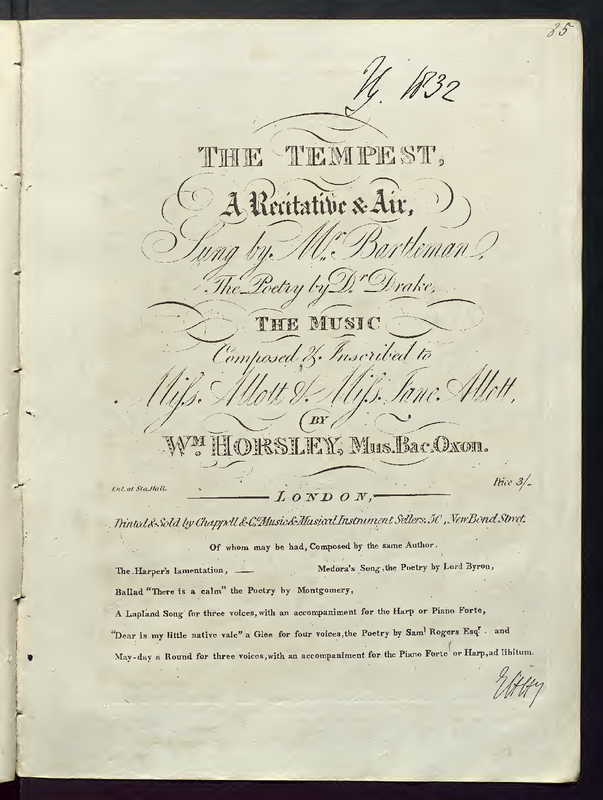 85
1832
THE TEMPEST,
A Recitative & Air,
Sung by Mr. Bartleman,
The Poetry by Dr Drake,
THE MUSIC
Composed & Inscribed to
Miss Allott & Miss Jane Allott,
BY
WM HORSLEY, Mus. Bac. Oxon.
Ent. at Sta. Hall. Price 3/-
LONDON,
Printed & Sold by Chappell & Co. Music & Musical Instrument Sellers, 50, New Bond Street.
Of whom may be had, Composed by the same Author.
The Harper's lamentation, — Medora's Song, the Poetry by Lord Byron,
Ballad "There is a calm" the Poetry by Montgomery,
A Lapland Song for three voices, with an accompaniment for the Harp or Piano Forte,
"Dear is my little native vale" a Glee for four voices, the Poetry by Saml Rogers Esqr. and
May-day a Round for three voices, with an accompaniment for the Piano Forte or Harp, ad libitum.